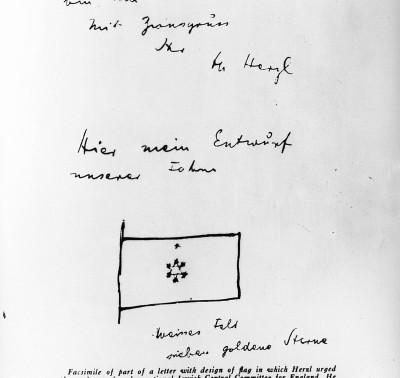 Mit Zionsgruss
Ihr
Th Herzl
Hier mein Entwurf
unserer Fahne
Weisses Feld
sieben goldene Sterne
Facsimile of part of a letter with design of flag in which Herzl urged
Jewish Central Committee for England. He